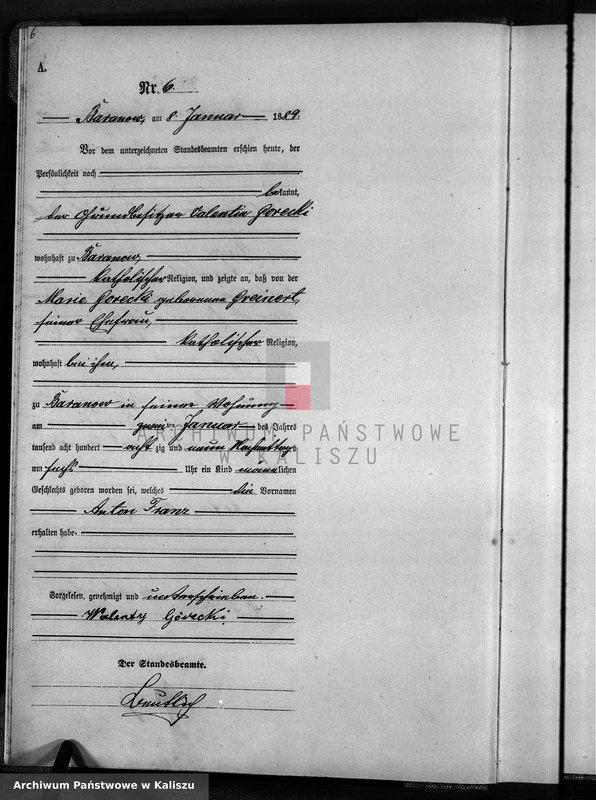 6
A.
Nr. 6.
Baranow, am 8. Januar 1889.
Vor dem unterzeichneten Standesbeamten erschien heute, der
Persönlichkeit nach
bekannt,
der Grundbesitzer Valentin Gorecki
wohnhaft zu Baranow,
katholischer Religion, und zeigte an, daß von der
Marie Gorecki geborenen Greinert,
seiner Ehefrau,
katholischer Religion,
wohnhaft bei ihm,
zu Baranow in seiner Wohnung
am zweiten Januar des Jahres
tausend acht hundert acht zig und neun Nachmittags
um sechs Uhr ein Kind männlichen
Geschlechts geboren worden sei, welches die Vornamen
Anton Franz
erhalten habe.
Vorgelesen, genehmigt und unterschrieben.
Walenty Górecki
Der Standesbeamte.
ARCHIWUM PAŃSTWOWE
W KALISZU
Archiwum Państwowe w Kaliszu